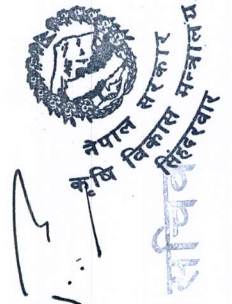 नेपाल सरकार
कृषि विकास मन्त्रालय
सिंहदरवार
सचिव